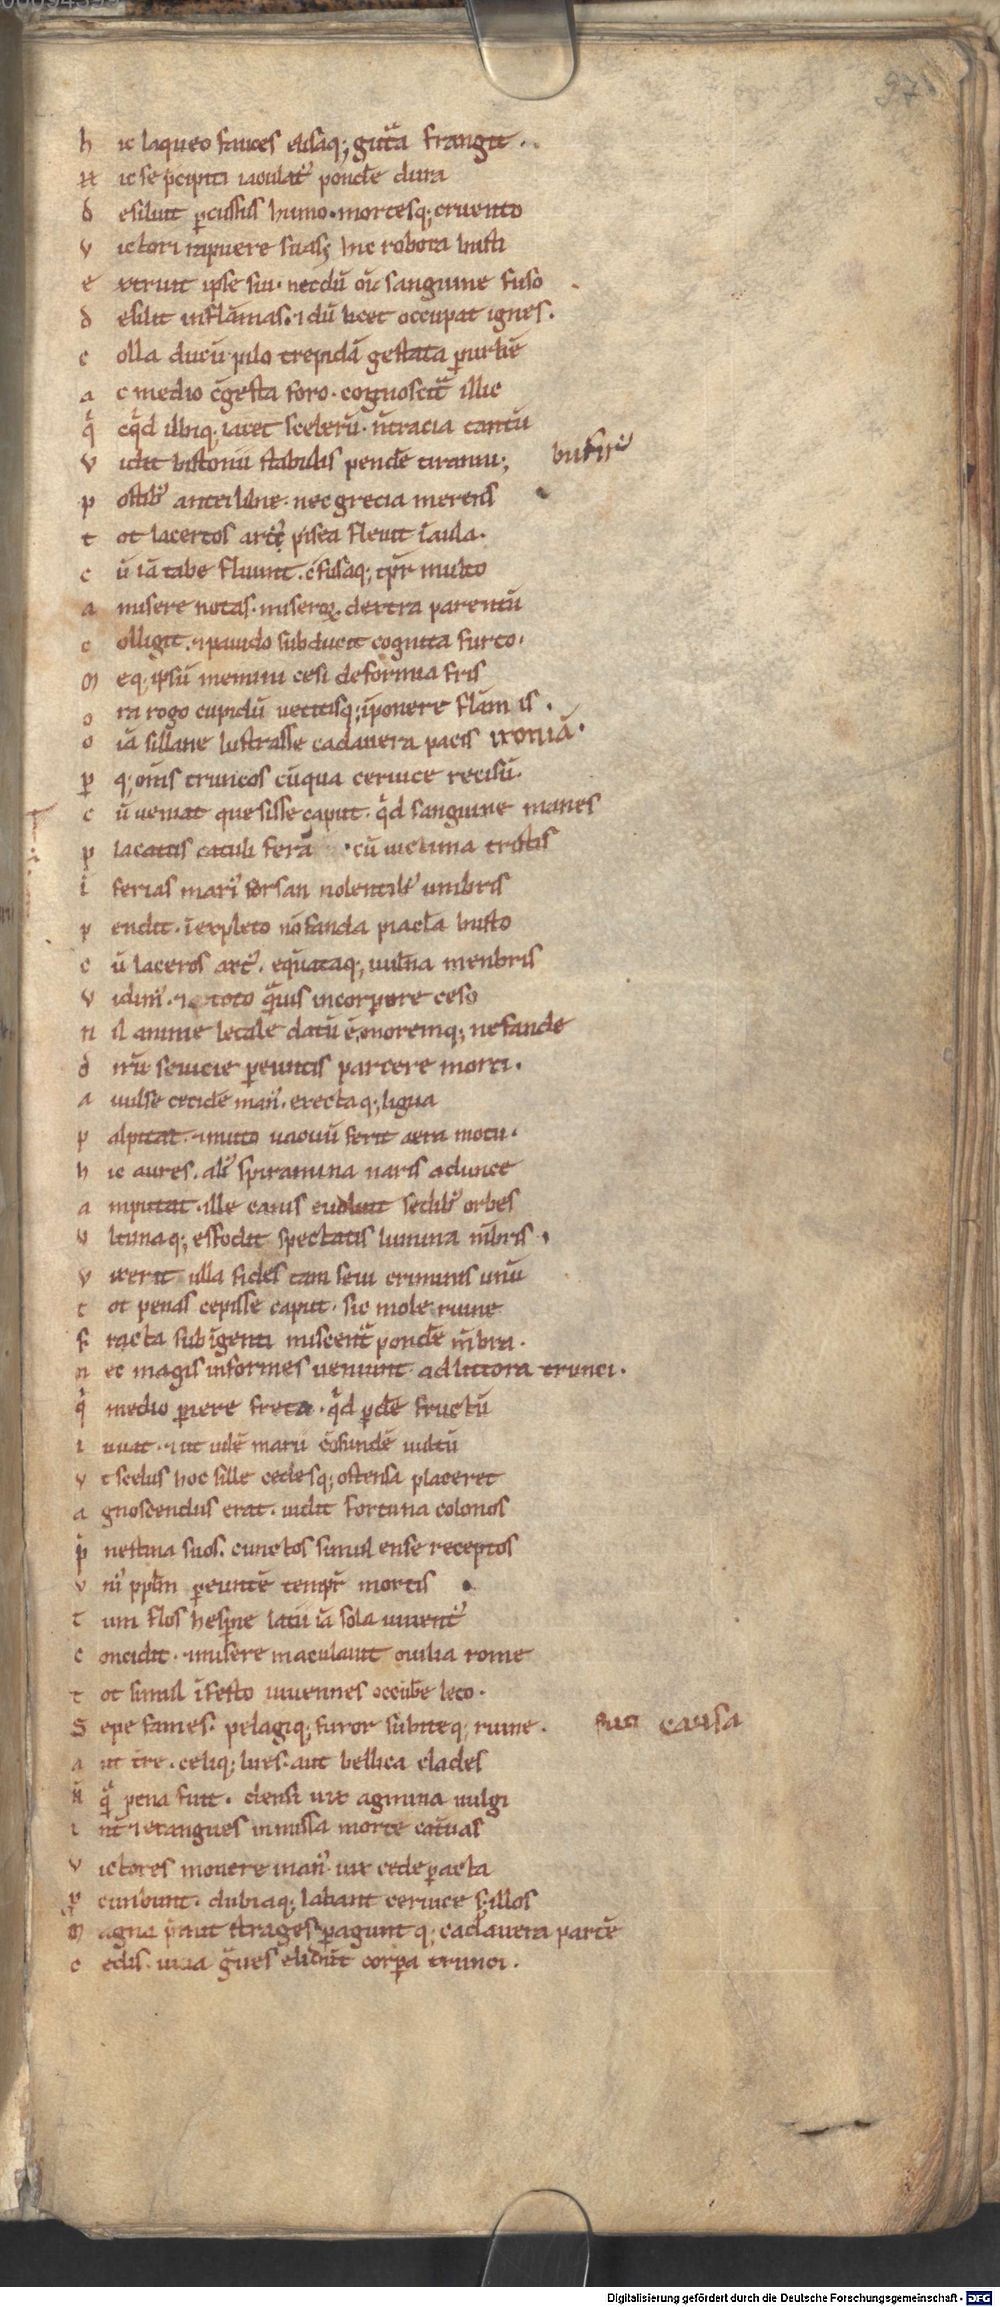 37
h ic laqueo fauces elisaq; gutt᷑a frangit .
H ic se p̄cipiti iaculat᷑ pond̄e dura
d esiluit ꝑcussus humo . mortesq; cruento
V ictori rapuere suas; hic robora busti
e xtruit ipse sui . necdū oī sanguine fuso
d esilit inflāmas . ⁊ dū licet occupat ignes .
c olla ducū pilo trepidā gestata ꝑ urbē
a c medio c̄gesta foro . cognoscit᷑ illic
q̇ cq̇d ubiq; iacet scelerū . n̄ tracia cantū
V idit bistonii stabulis pendē tiranni;
busir᷒
p ostib᷒ antei libie . nec grecia merens
t ot laceros art᷒ pisea fleuit ī aula .
c ū iā tabe fluunt . c̄fusaq; tp̄r multo
a misere notas . miseroꝝ dextra parentū
c olligit . ⁊ pauido subducit cognita furto .
m eq; ipsū memini cesi deformia fr̄is
o ra rogo cupidū uetitisq; īponere flām is .
o īa sillane lustrasse cadauera pacis
ironiā .
ꝑ q; om̄s truncos cū qua ceruice recisū .
c ū ueniat quesisse caput . q̇d sanguine manes
p lacatos catuli ferā . cū uictima tristis
i ferias marī forsan nolentib᷒ umbris
p endit . īexpleto nō fanda piacl̄a busto
c ū laceros art᷒ . equataq; uuln̄a menbris
V idim᷒ . ⁊ toto q̄uis in corpore ceso
n il anime letale datū ē, moremq; nefande
d irū seuicie ꝑeuntis parcere morti .
a uulse cecidē man᷒ . erectaq; ligua
p alpitat . ⁊ muto uacuū ferit aera motu .
h ic aures . ali᷒ spiramina naris adunce
a mputat . ille cauis euoluit sedib᷒ orbes
v ltimaq; effodit spectatis lumina mēbris .
v ixerit ulla fides tam seui criminis unū
t ot penas cepisse caput . sic mole ruine
f racta sub īgenti miscent᷑ pondē mēbra .
n ec magis informes ueniunt ad littora trunci .
q̇ medio ꝑiere freto . q̇d ꝑdē fructū
i uuat . ⁊ ut uilē marii c̄fundē uultū
v t scelus hoc sille cedesq; ostensa placeret
a gnoscendus erat . uidit fortuna colonos
p̄ nestina suos . cunctos simul ense receptos
v ni᷒ ppl̄m ꝑeuntē tempr̄ mortis
t um flos hesꝑie latii iā sola iuuent᷒
c oncidit . ⁊ misere maculauit ouilia rome
t ot simul īfesto iuuenes occūbē leto .
S epe fames . pelagiq; furor subiteq; ruine .
fuit causa
a ut tr̄e . celiq; lues . aut bellica clades
n̄ q̄ pena fuit . densi uix agmina uulgi
i nt̄ ⁊ exangues inmissa morte cat̄uas
v ictores mouere man᷒ uix cede ꝑacta
ꝓ cumbunt . dubiaq; labant ceruice s; illos
m agna p̄mit strages . ꝑaguntq; cadauera partē
c edis . uiua ḡues elidunt corꝑa trunci .
Digitalisierung gefördert durch die Deutsche Forschungsgemeinschaft - DFG